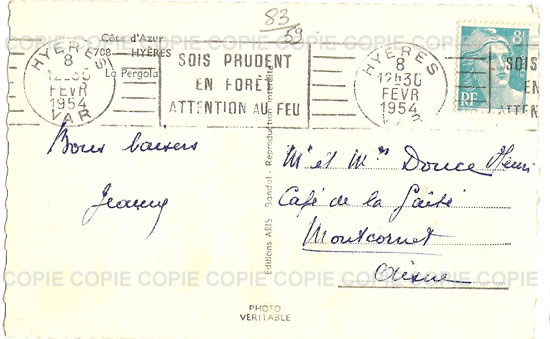 83
59
Côte d'Azur
5708 - HYÈRES
La Pergola
HYÈRES
8
12H30
FEVR
1954
VAR
SOIS PRUDENT
EN FORÊT
ATTENTION AU FEU
HYÈRES
8
12H30
FEVR
1954
VAR
8F
RF
SOIS
EN
ATTEN
COPIE COPIE COPIE COPIE COPIE COPIE COPIE
Bons baisers
Jeanny
Editions ARIS - Bandol - Reproduction interdite
Mr et Mme Douce Henri
Café de la Gaîté
Montcornet
Aisne
COPIE COPIE COPIE COPIE COPIE COPIE COPIE
PHOTO
VERITABLE